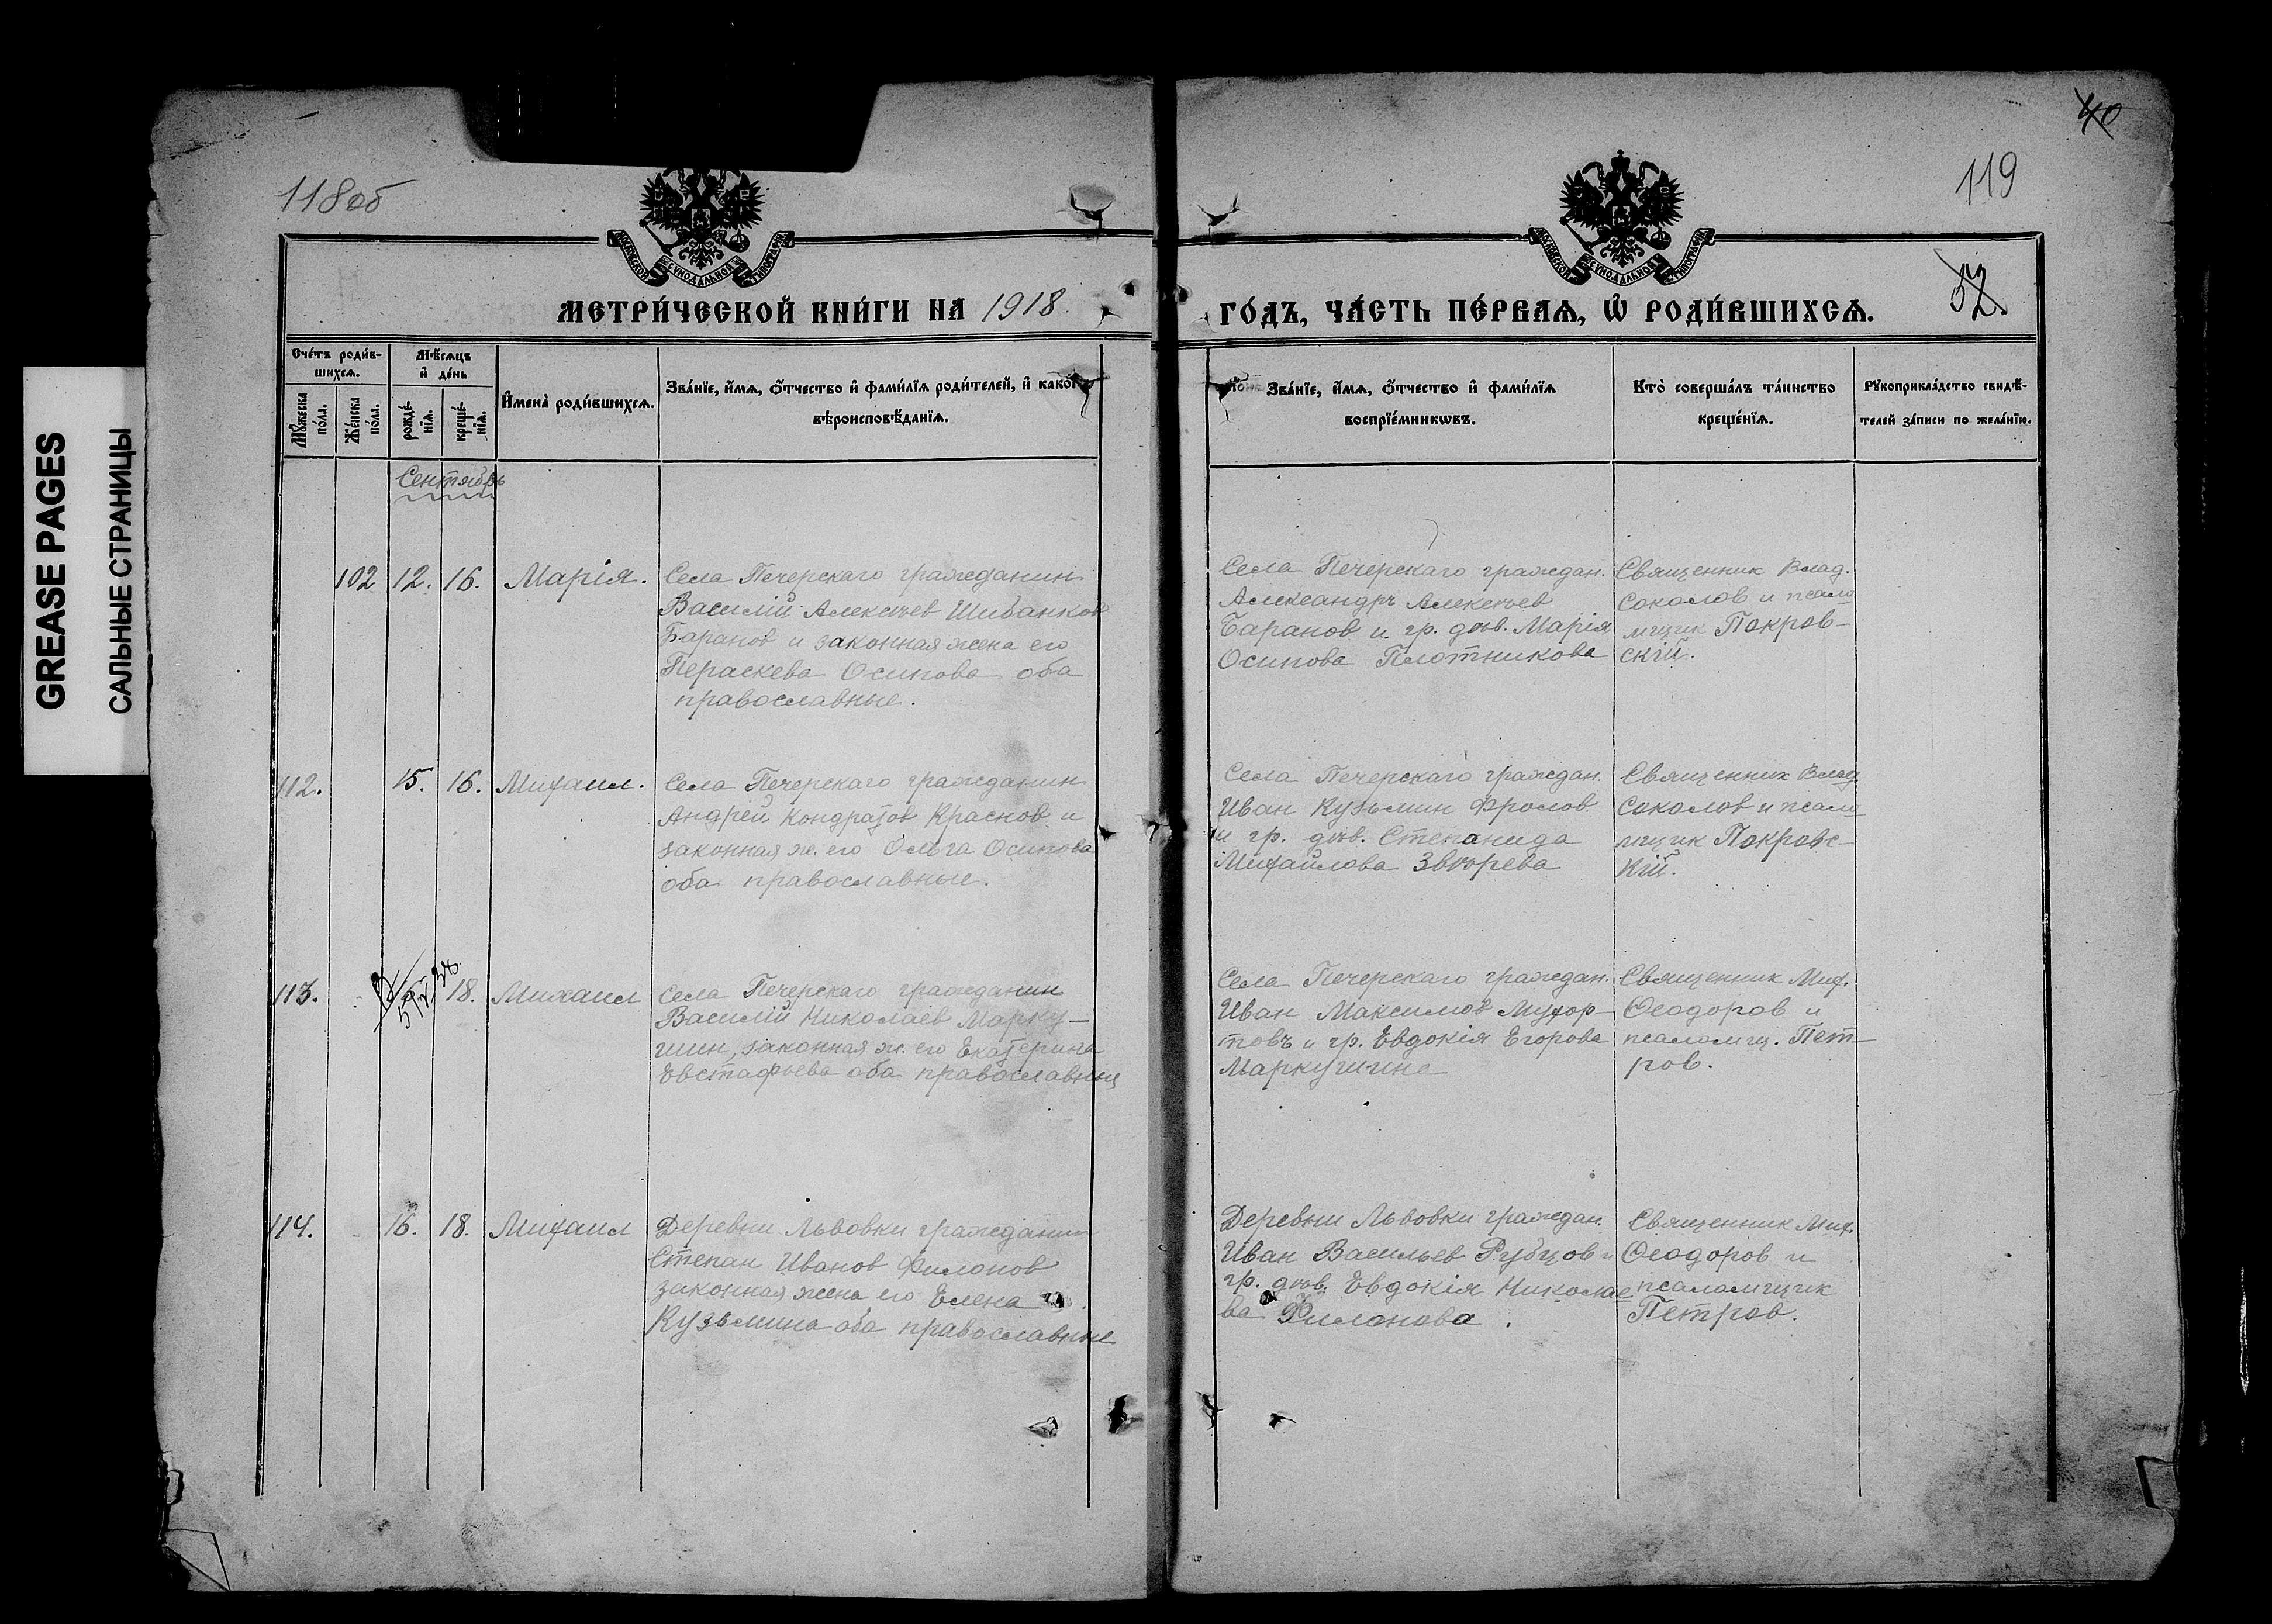 40
118об
119
МОСКОВСКОЙ СУНОДАЛЬНОЙ ТИПОГРАФІИ
МОСКОВСКОЙ СУНОДАЛЬНОЙ ТИПОГРАФІИ
52.
МЕТРИ́ЧЕСКОЙ КНИ́ГИ НА 1918.
ГО́ДЪ, ЧА́СТЬ ПЕ́РВАЯ, Ѡ РОДИ́ВШИХСЯ.
Сче́тъ роди́в-
шихся.
Мѣ́сяцъ
и де́нь
Му́жеска
по́ла.
Же́нска
по́ла.
рожде́-
нія.
креще́-
нія.
Имена̀ роди́вшихся.
Зва́ніе, и́мя, о́тчество и фами́лія роди́телей, и како́гѡ
вѣроисповѣ́данія.
Зва́ніе, и́мя, о́тчество и фами́лія
воспріе́мникѡвъ.
Кто̀ соверша́лъ та́инство
креще́нія.
Рукоприкла́дство свидѣ́-
телей за́писи по жела́нію.
GREASE PAGES
САЛЬНЫЕ СТРАНИЦЫ
Сентябрь
102 12. 16. Марія.
Села Печерскаго гражданин
Василій Алексѣев Шибанков
Баранов и законная жена его
Пераскева Осипова оба
православные.
Села Печерскаго граждан.
Александръ Алексѣев
Баранов и гр. дѣв. Марія
Осипова Плотникова
Священник Влад.
Соколов и псало
мщик Покров-
скій.
112. 15. 16. Михаил.
Села Печерскаго гражданин
Андрей Кондратов Краснов и
законная ж. его Ольга Осипова
оба православные.
Села Печерскаго граждан.
Иван Кузьмин Фролов
и гр. дѣв. Степанида
Михайлова Звѣрева
Священник Влад.
Соколов и псало
мщик Покровс-
кій.
113. 18. Михаил
Села Печерскаго гражданин
Василій Николаев Марку-
шин, законная ж. его Екатерина
Евстафьева оба православныя
Села Печерскаго граждан.
Иван Максимов Мухор-
товъ и гр. Евдокія Егорова
Маркушина
Священник Мих.
Ѳеодоров и
псаломщ. Пет-
ров.
114. 16. 18. Михаил
Деревни Львовки гражданин
Степан Иванов Филонов
законная жена его Елена
Кузьмина оба православные
Деревни Львовки граждан.
Иван Васильев Рубцов и
гр. дѣв. Евдокія Николае
ва Филонова.
Священник Мих.
Ѳеодоров и
псаломщик
Петров.